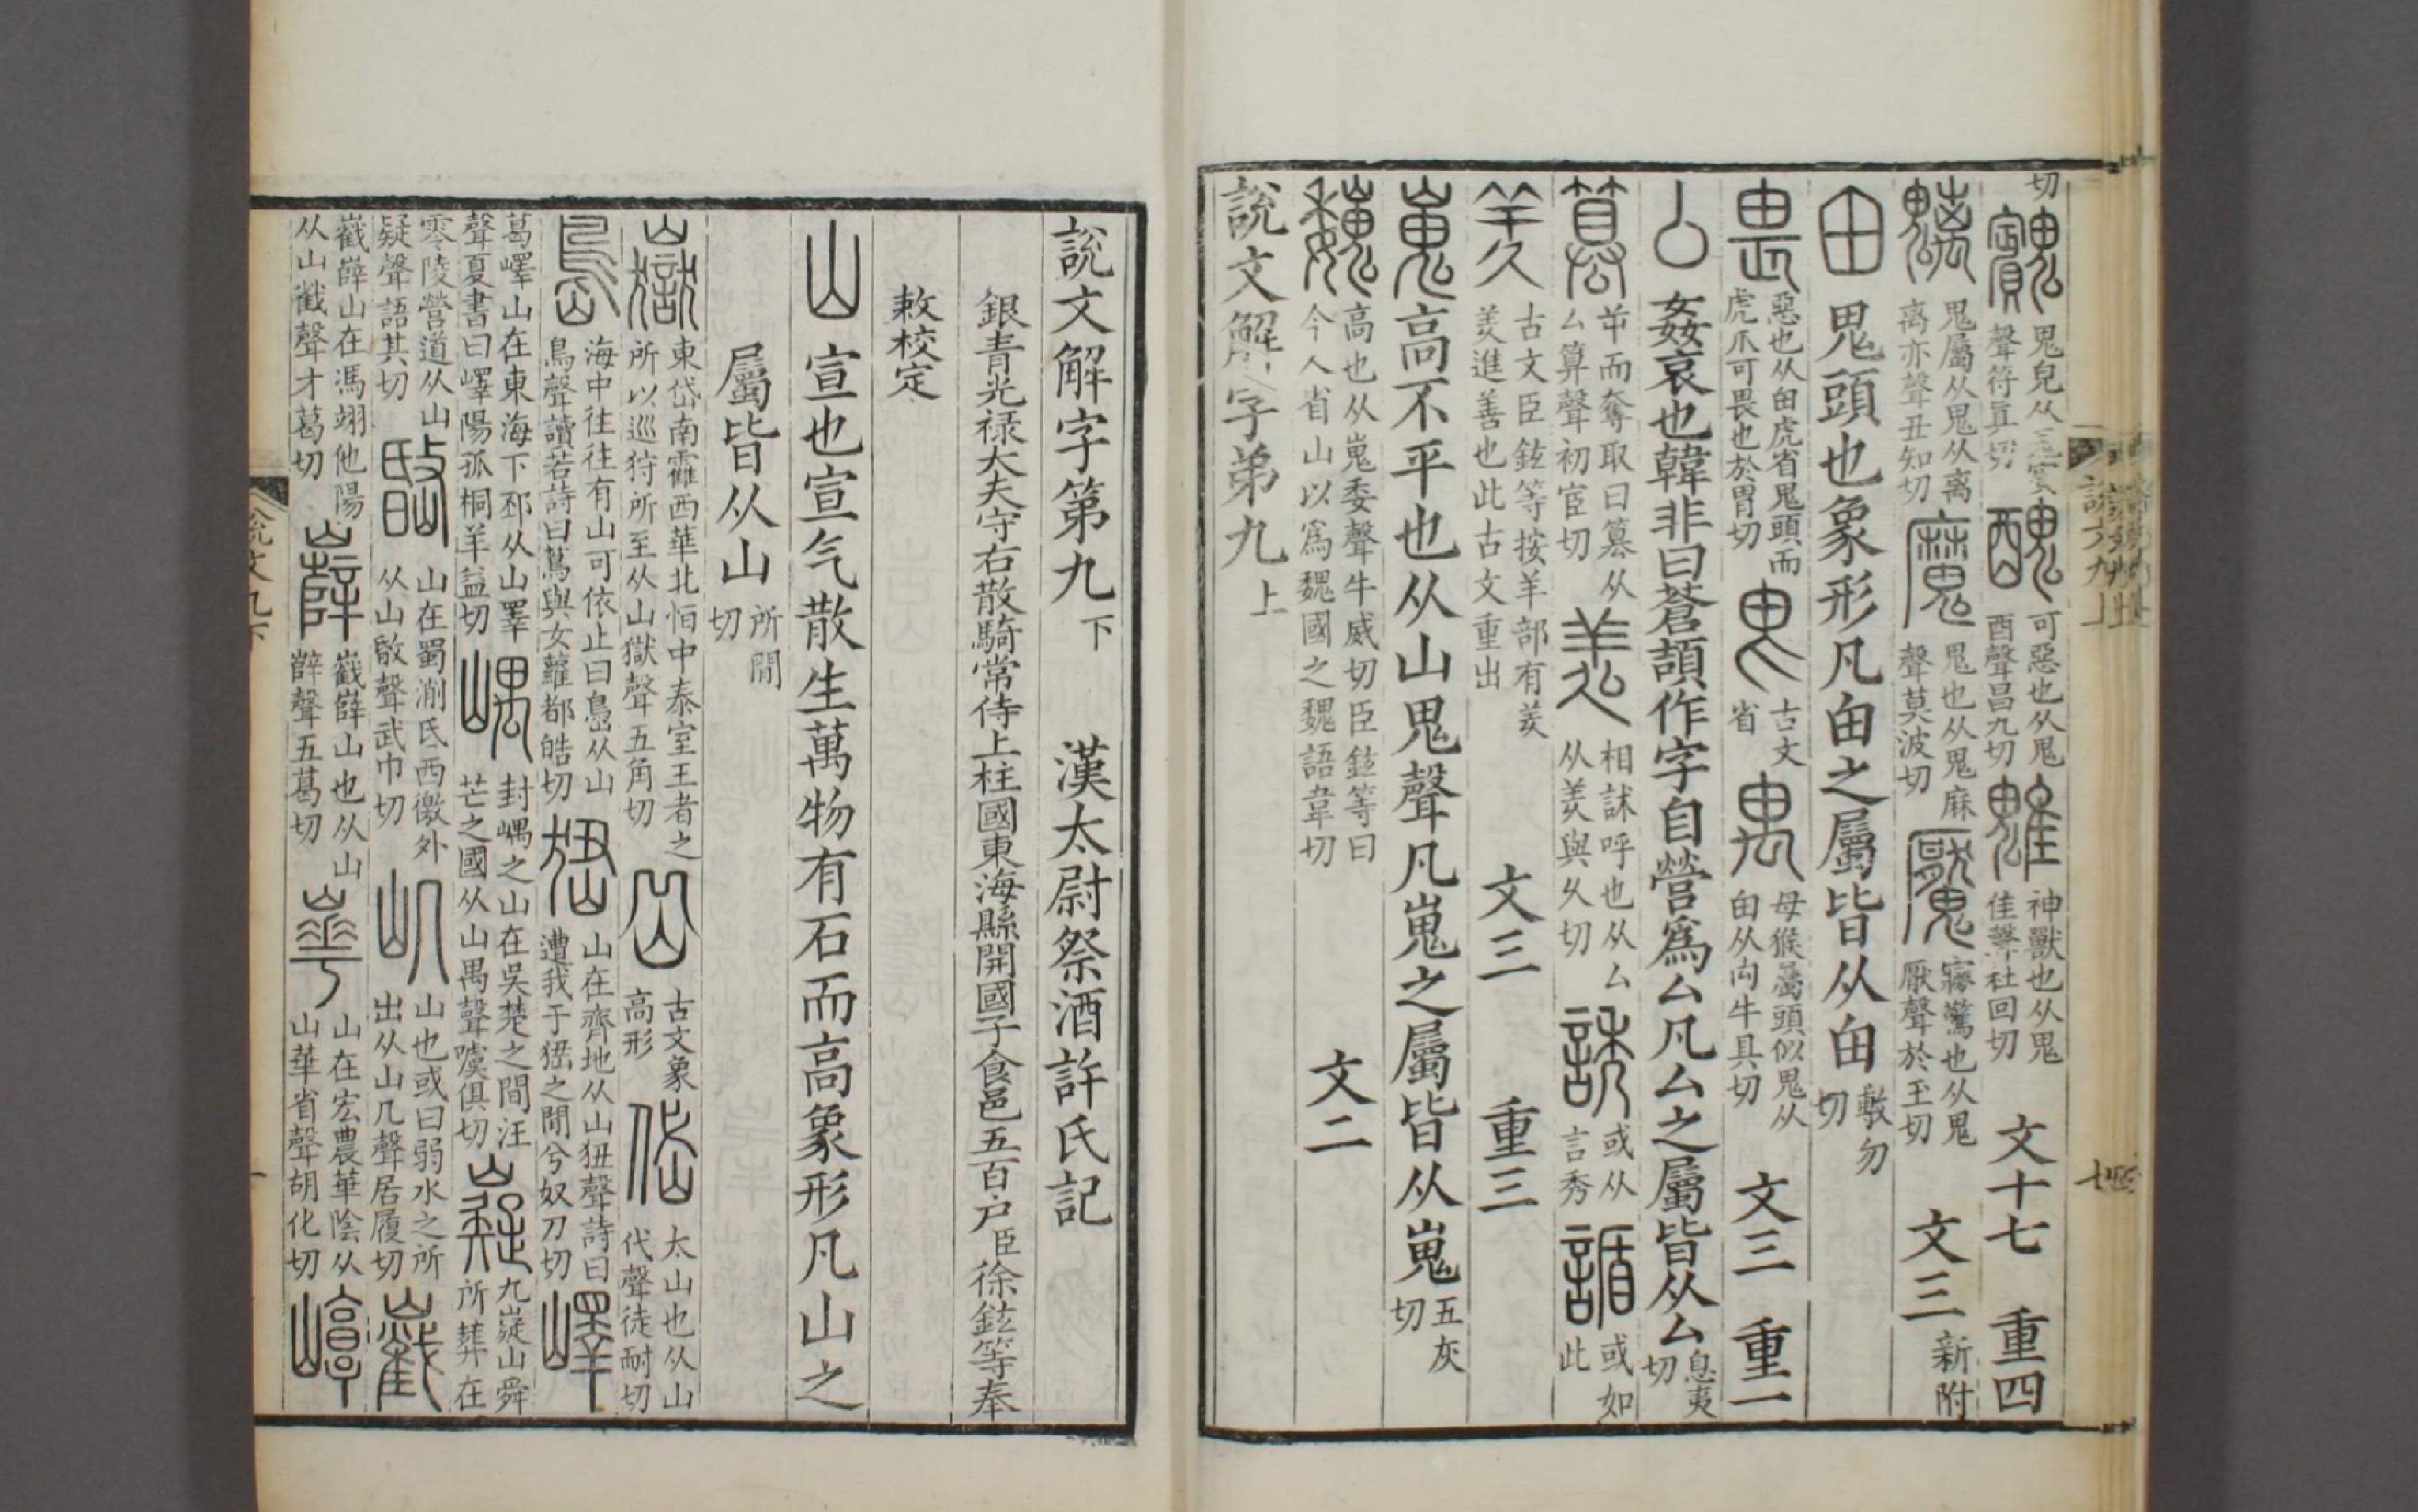 切 鬼皃从鬼賓聲符眞切 醜 可惡也从鬼酉聲昌九切 魋 神獸也从鬼隹聲杜回切 文十七 重四
魑 鬼屬从鬼从离离亦聲丑知切 魔 鬼也从鬼麻聲莫波切 魘 寐驚也从鬼厭聲於切 文三 新附
甶 鬼頭也象形凡甶之屬皆从甶 敷勿切
畏 惡也从甶虎省鬼頭而虎爪可畏也於胃切 古文省 禺 母猴屬頭似鬼从甶从禸牛具切 文三 重一
厶 姦衺也韓非曰蒼頡作字自營爲厶凡厶之屬皆从厶 息夷切
篡 屰而奪取曰篡从厶算聲初宦切 䍮 相訹呼也从厶从羑與久切 誘 或从言秀 䛻 或如此
羑 古文臣鉉等按羊部有羑羑進善也此古文重出 文三 重三
嵬 高不平也从山鬼聲凡嵬之屬皆从嵬 五灰切
巍 高也从嵬委聲牛威切臣鉉等曰今人省山以爲魏國之魏語韋切 文二
說文解字弟九上
說文解字第九下 漢太尉祭酒許氏記
銀青光祿大夫守右散騎常侍上柱國東海縣開國子食邑五百戶臣徐鉉等奉
敕校定
山 宣也宣气散生萬物有石而高象形凡山之
屬皆从山 所閒切
嶽 東岱南靃西華北恒中泰室王者之所以巡狩所至从山獄聲五角切 古文象高形 岱 太山也从山代聲徒耐切
島 海中往往有山可依止曰島从山鳥聲讀若詩曰蔦與女蘿都皓切 峱 山在齊地从山狃聲詩曰遭我于峱之閒兮奴刀切 嶧
葛嶧山在東海下邳从山睪聲夏書曰嶧陽孤桐羊益切 嵎 封嵎之山在吳楚之閒汪芒之國从山禺聲噳俱切 嶷 九嶷山舜所葬在
零陵營道从山疑聲語其切 㟭 山在蜀湔氐西徼外从山敃聲武巾切 屼 山也或曰弱水之所出从山几聲居履切 巀
巀嶭山在馮翊池陽从山巀聲才葛切 嶭 巀嶭山也从山辥聲五葛切 崋 山在宏農華陰从山華省聲胡化切 崞
說文九下
一